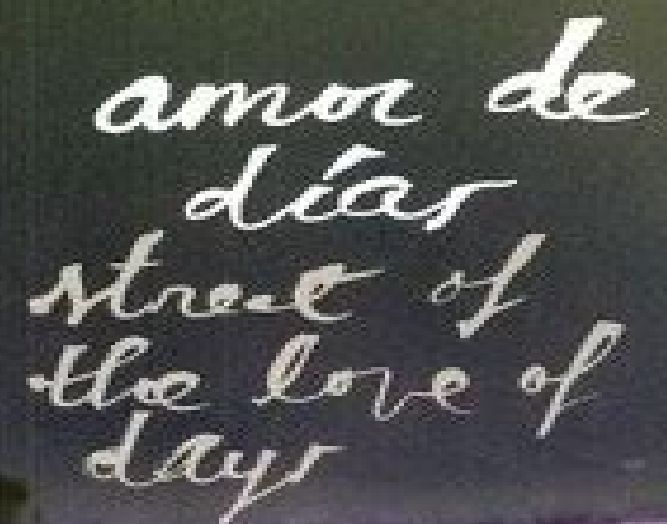 amor de
días
street of
the love of
days